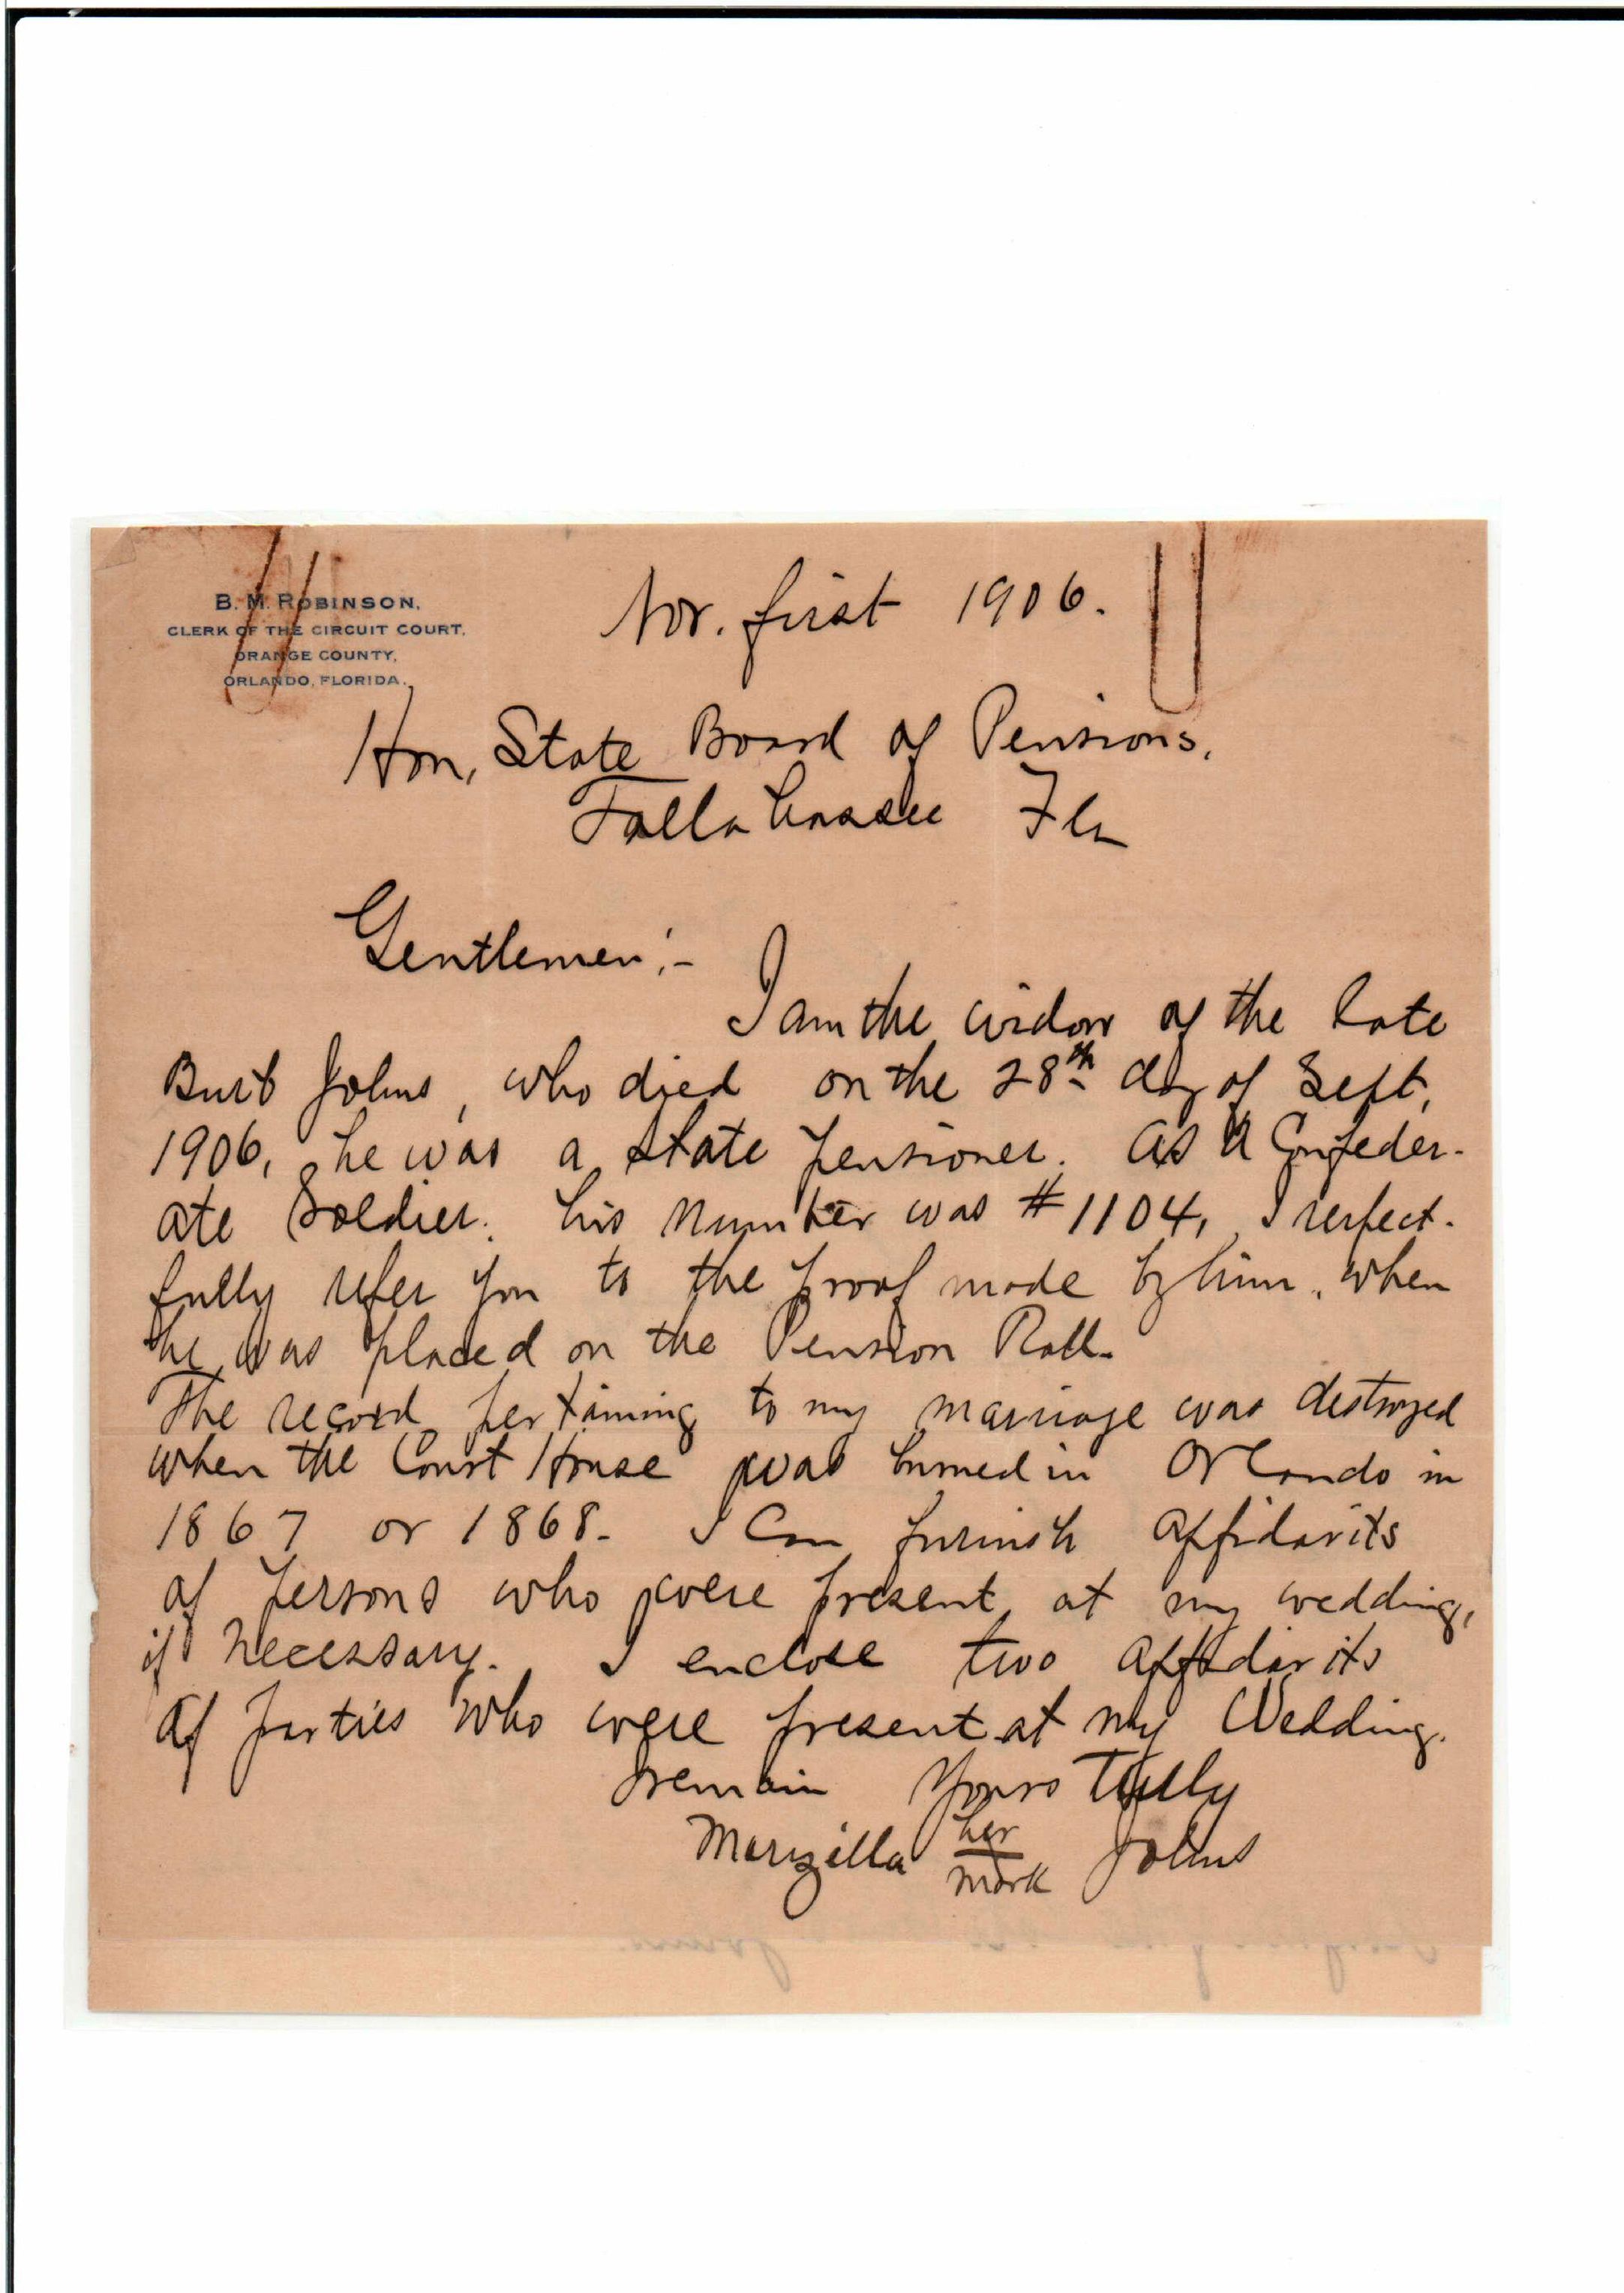 B. M. ROBINSON,
CLERK OF THE CIRCUIT COURT,
ORANGE COUNTY,
ORLANDO, FLORIDA.
Nov. first 1906.
Hon, State Board of Pensions,
Tallahassee Fla
Gentlemen:-
I am the widow of the late
Johns, who died on the 28th day of Sept,
1906, he was a state pensioner. as a Confeder-
ate Soldier. his number was #1104, I respect-
fully refer you to the proof made by him, when
he was placed on the Pension Roll-
The record pertaining to my marriage was destroyed
when the Court House was burned in Orlando in
1867 or 1868- I can furnish affidavits
of persons who were present at my wedding,
if necessary. I enclose two affidavits
of parties who were present at my Wedding.
I remain Yours Truly
Marizilla her mark Johns